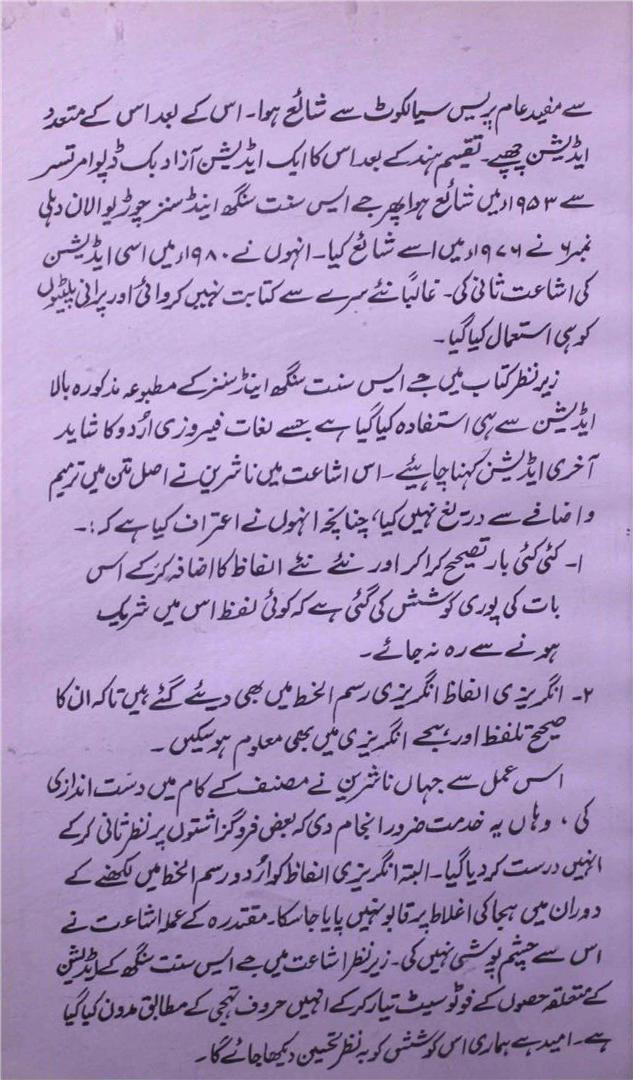 سے مفید عام پریس سیالکوٹ سے شائع ہوا۔ اس کے بعد اس کے متعدد
ایڈیشن چھپے۔ تقسیم ہند کے بعد اس کا ایک ایڈیشن آزاد بک ڈپو امرتسر
سے ۱۹۵۳ء میں شائع ہوا پھر جے ایس سنت سنگھ اینڈ سنز چوڑیوالان دہلی
نمبر ۶ نے ۱۹۷۶ء میں اسے شائع کیا۔ انہوں نے ۱۹۸۰ء میں اسی ایڈیشن
کی اشاعت ثانی کی۔ غالباً نئے سرے سے کتابت نہیں کروائی اور پرانی پلیٹوں
کو ہی استعمال کیا گیا۔
زیر نظر کتاب میں جے ایس سنت سنگھ اینڈ سنز کے مطبوعہ مذکورہ بالا
ایڈیشن سے ہی استفادہ کیا گیا ہے جسے لغات فیروزی اُردو کا شاید
آخری ایڈیشن کہنا چاہیئے۔ اس اشاعت میں ناشرین نے اصل متن میں ترمیم
و اضافے سے دریغ نہیں کیا، چنانچہ انہوں نے اعتراف کیا ہے کہ :۔
۱۔ کئی کئی بار تصحیح کرا کر اور نئے نئے الفاظ کا اضافہ کر کے اس
بات کی پوری کوشش کی گئی ہے کہ کوئی لفظ اس میں شریک
ہونے سے رہ نہ جائے۔
۲۔ انگریزی الفاظ انگریزی رسم الخط میں بھی دیئے گئے ہیں تاکہ ان کا
صحیح تلفظ اور ہجے انگریزی میں بھی معلوم ہو سکیں۔
اس عمل سے جہاں ناشرین نے مصنف کے کام میں دست اندازی
کی، وہاں یہ خدمت ضرور انجام دی کہ بعض فروگزاشتوں پر نظرثانی کر کے
انہیں درست کر دیا گیا۔ البتہ انگریزی الفاظ کو اُردو رسم الخط میں لکھنے کے
دوران میں ہجا کی اغلاط پر قابو نہیں پایا جا سکا۔ مقتدرہ کے عملہ اشاعت نے
اس سے چشم پوشی نہیں کی۔ زیر نظر اشاعت میں جے ایس سنت سنگھ کے ایڈیشن
کے متعلقہ حصوں کے فوٹو سیٹ تیار کر کے انہیں حروف تہجی کے مطابق مدون کیا گیا
ہے۔ امید ہے ہماری اس کوشش کو بہ نظر تحسین دیکھا جائے گا۔